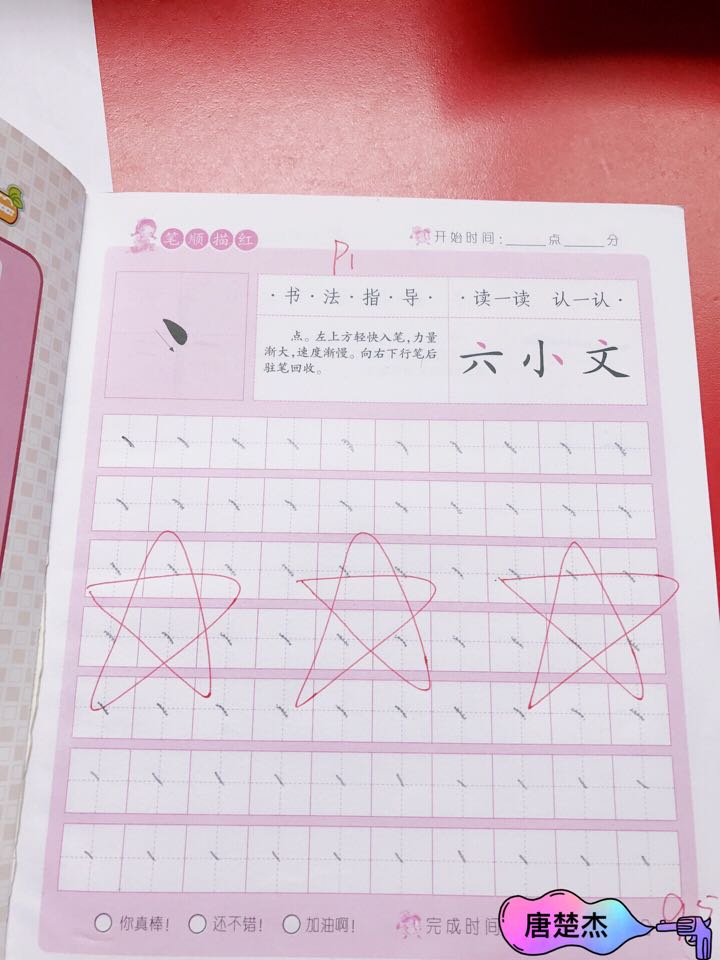 笔顺描红
开始时间:____点____分
P1
·书·法·指·导·
·读一读 认一认·
点。左上方轻快入笔,力量
渐大,速度渐慢。向右下行笔后
驻笔回收。
六 小 文
你真棒!
还不错!
加油啊!
完成时间
唐楚杰